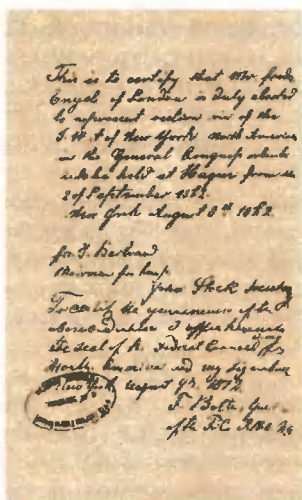 This is to certify that Mr fredr
Engels of London is duly elected
to represent section vi of the
I. W. A of New York North America
in the General Congress which
is to be held at Hague from the
2 of September 1872.
New York August 8th 1872
for J. Bertrand
for
John Secretary
To certify the genuineness of the
above I affix hereunto
the seal of the Federal Council for
North America and my signature
New York August 9th 1872
F Bolte,
of the F.C.